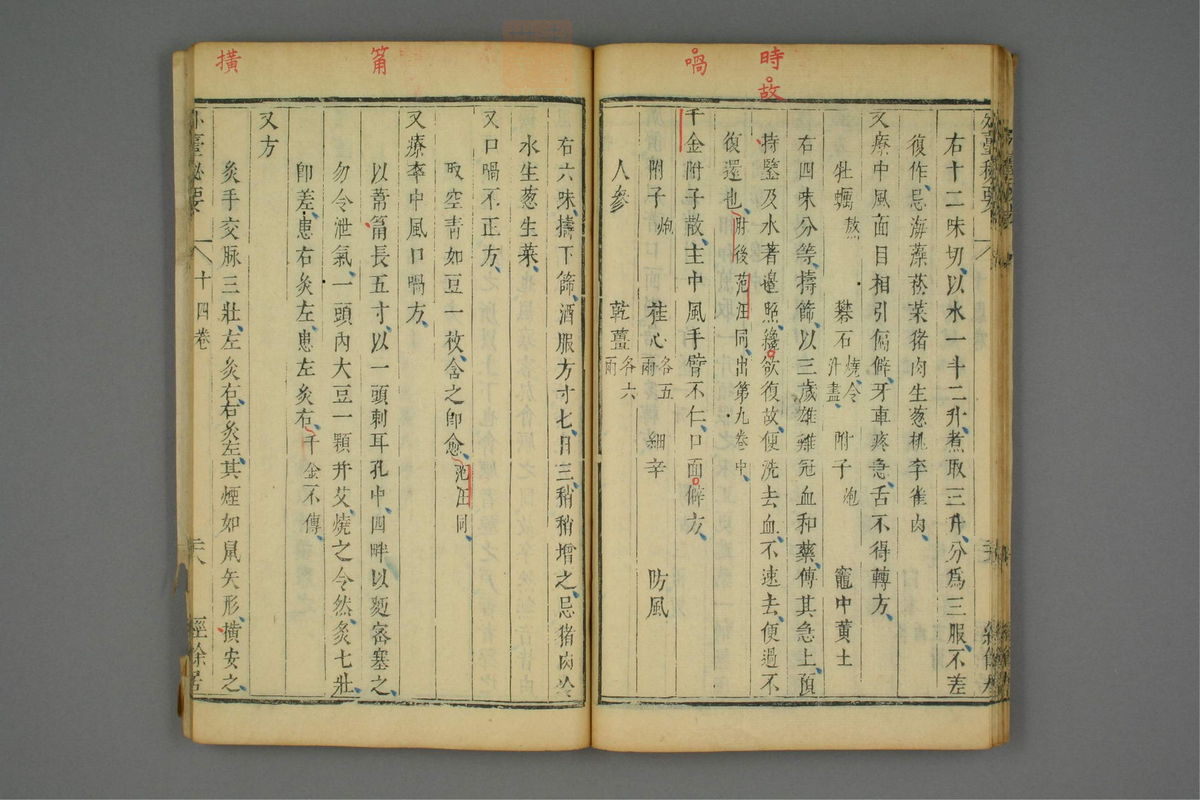 時故
喎
右十二味切以水一斗二升煮取三升分為三服不差
復作忌海藻菘菜猪肉生葱桃李雀肉
又療中風面目相引偏僻牙車疼急舌不得轉方
牡蠣熬 礬石燒令汁盡 附子炮 竈中黃土
右四味分等擣篩以三歲雄雞冠血和藥傅其急上預
持鑒及水著邊照纔欲復故便洗去血不速去便過不
復還也肘後范汪同出第九卷中
千金附子散主中風手臂不仁口面僻方
附子炮 桂心各五兩 細辛 防風
人參 乾薑各六兩
篅
擴
右六味擣下篩酒服方寸匕日三稍稍增之忌猪肉冷
水生葱生菜
又口喎不正方
取空青如豆一枚含之卽愈范汪同
又療卒中風口喎方
以葦筩長五寸以一頭刺耳孔中四畔以麪密塞之
勿令泄氣一頭內大豆一顆并艾燒之令然灸七壯
卽差患右灸左患左灸右千金不傳
又方
灸手交脉三壯左灸右右灸左其煙如鼠矢形擴安之
外臺秘要
十四卷
二六
經餘居